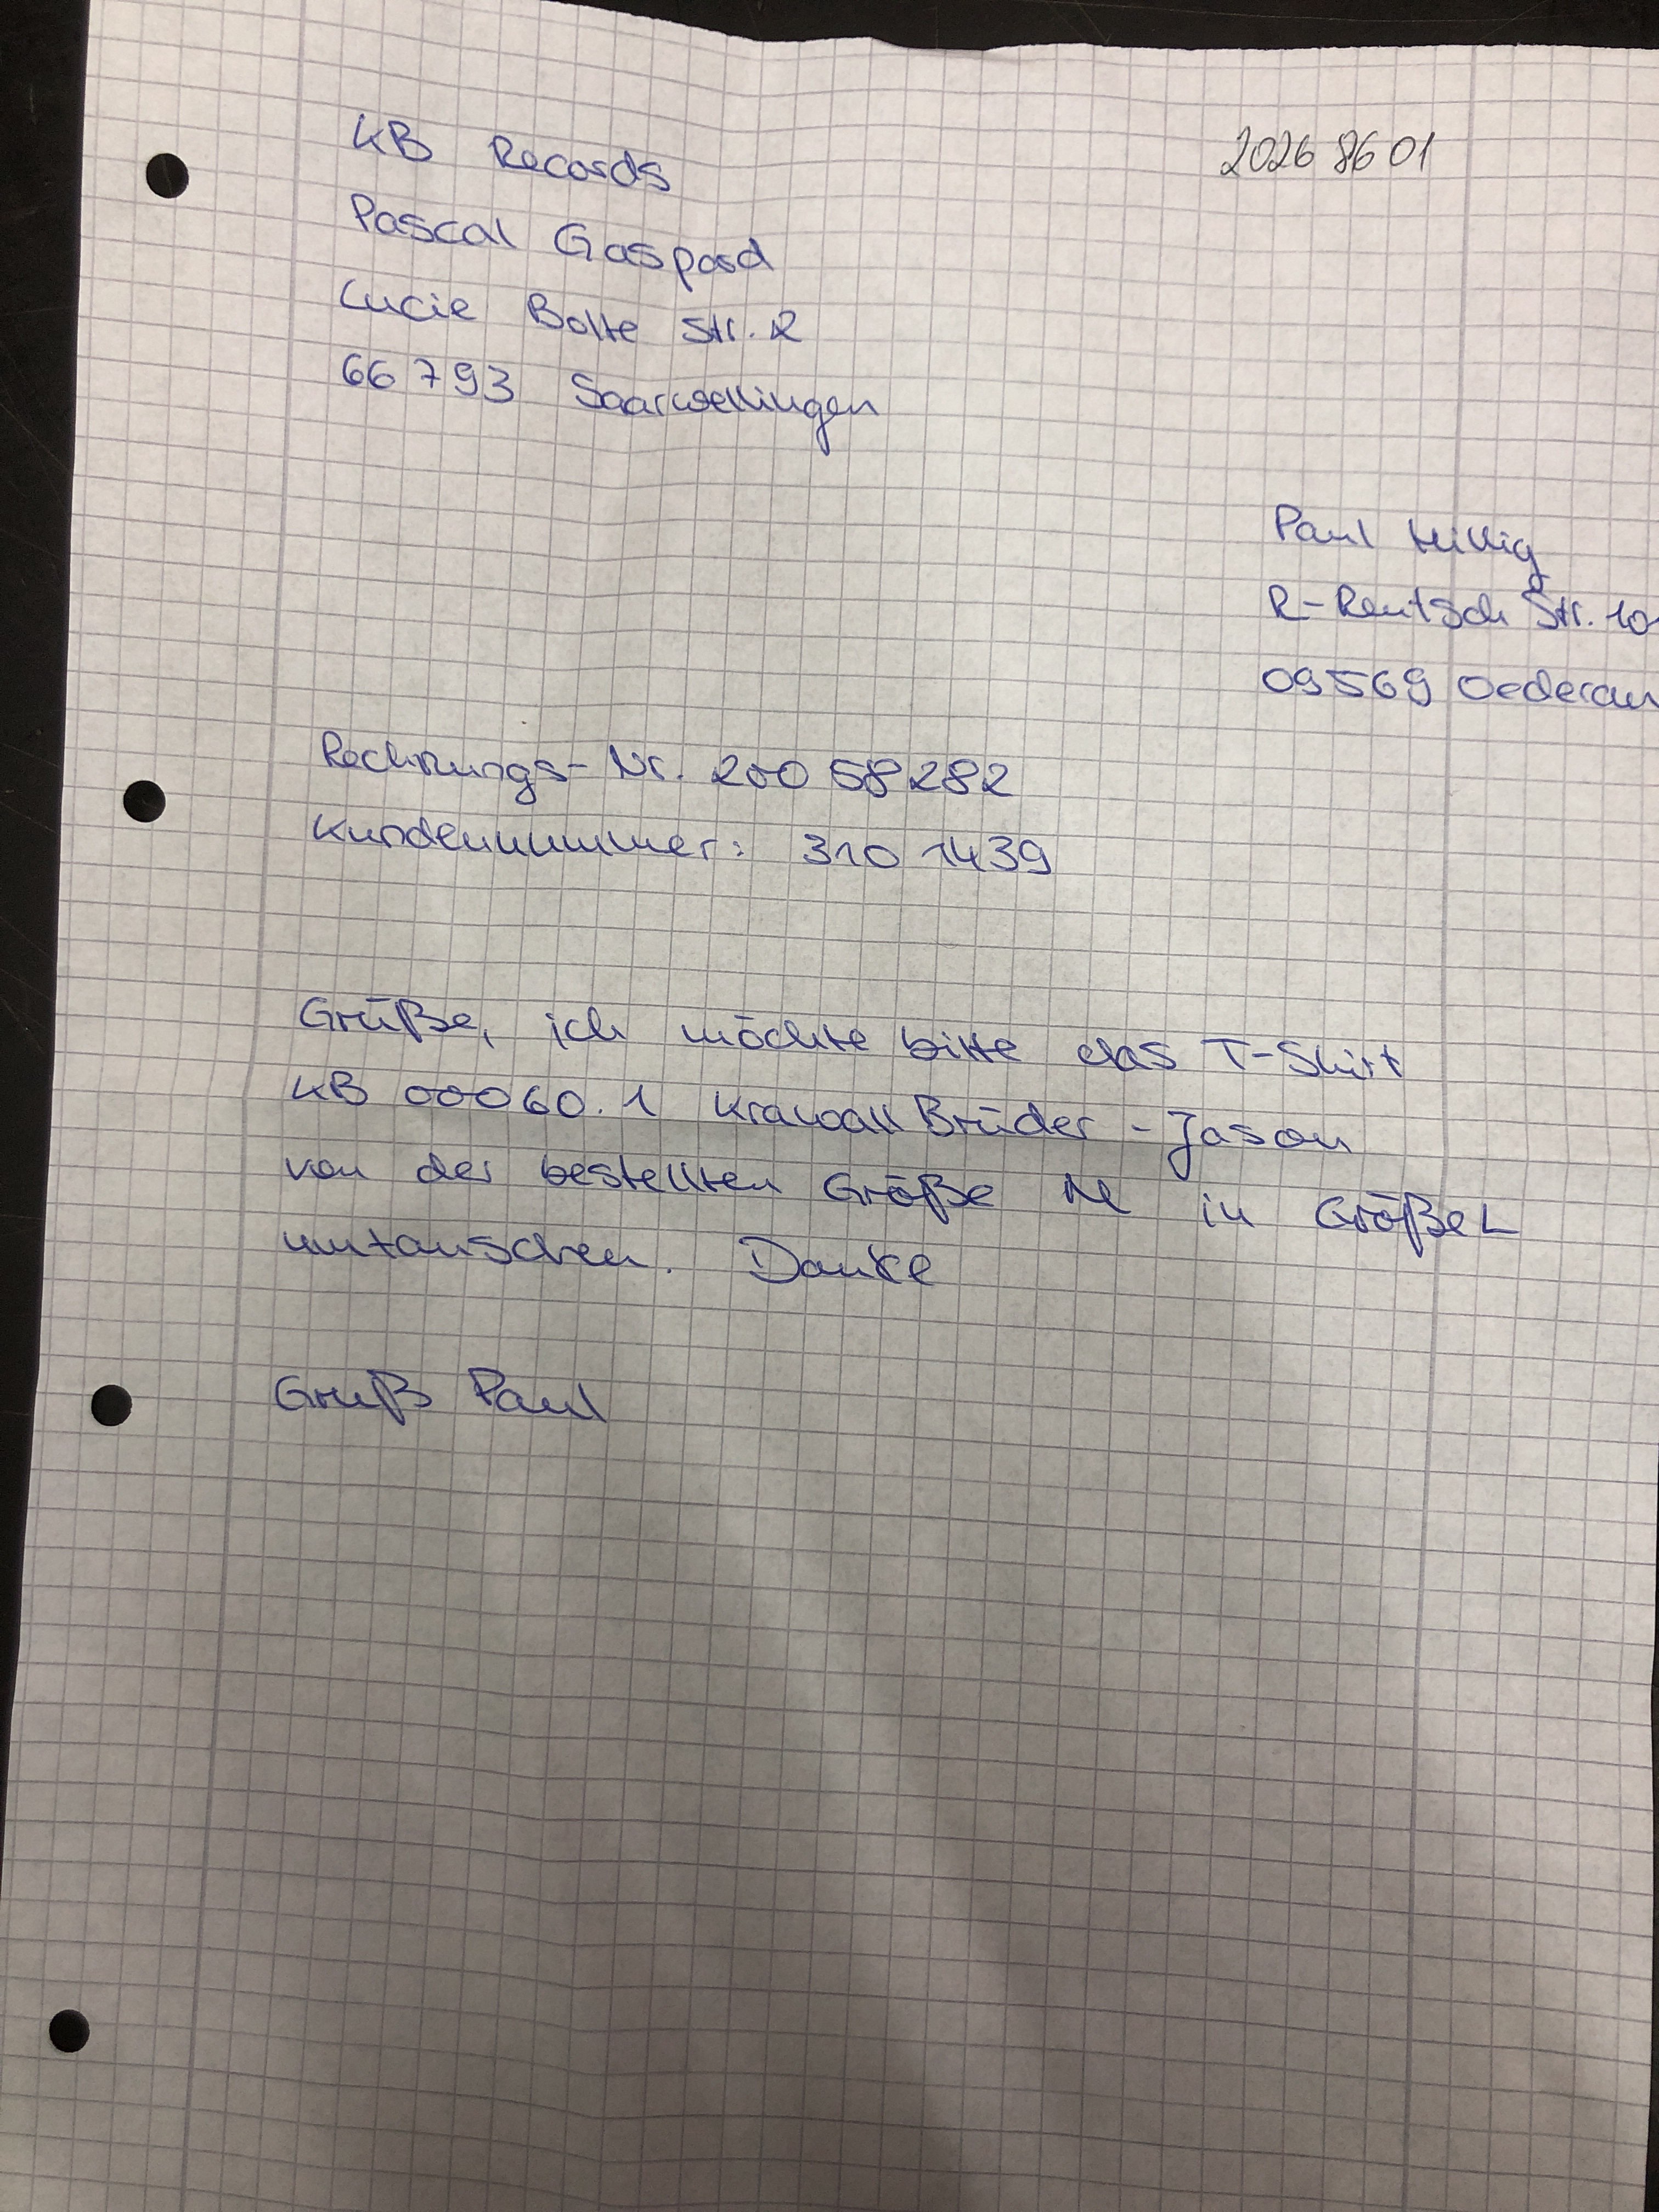 KB Records
2026 86 01
Pascal Gaspard
Lucie Bolte Str. 2
66793 Saarwellingen
Paul Hillig
R-Rentsch Str. 10
09569 Oederan
Rechnungs-Nr. 200 58282
Kundennummer: 310 1439
Grüße, ich möchte bitte das T-Shirt
KB 00060.1 KrawallBrüder - Jason
von der bestellten Größe M in Größe L
umtauschen. Danke
Gruß Paul